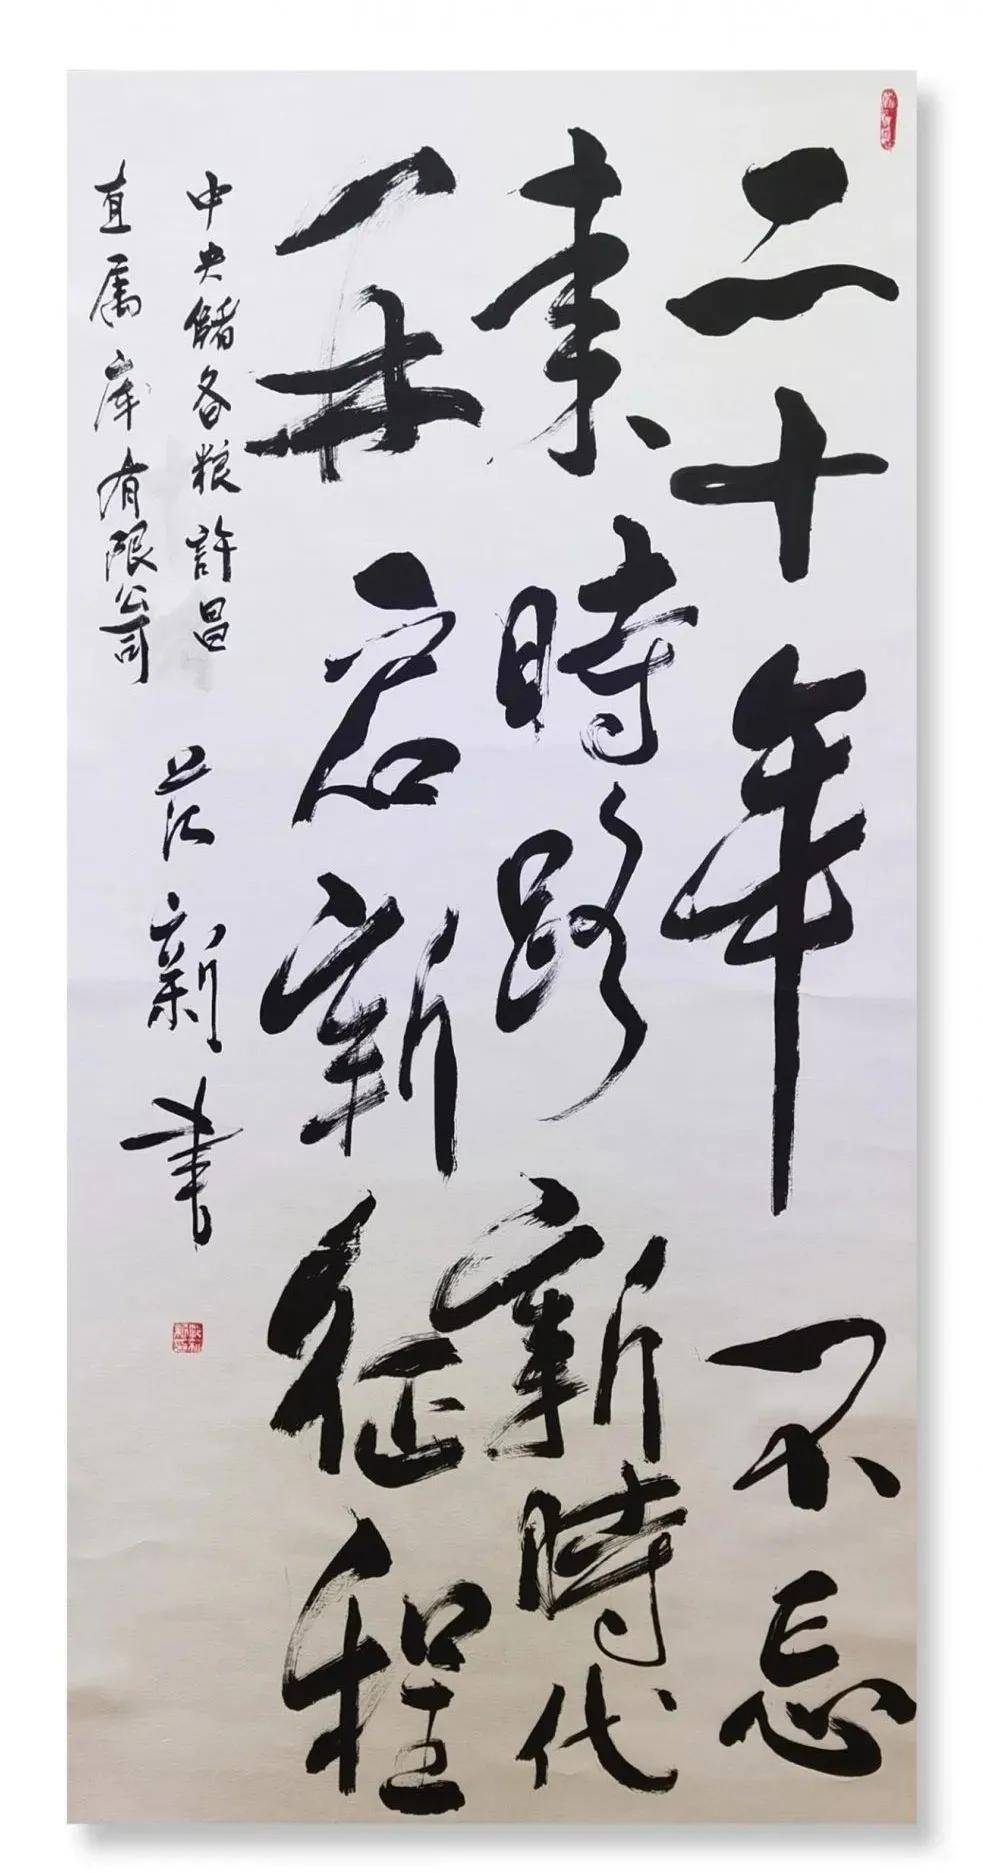 二十年不忘
来時路新時代
再启新征程
中央儲备粮許昌
直属库有限公司
新书